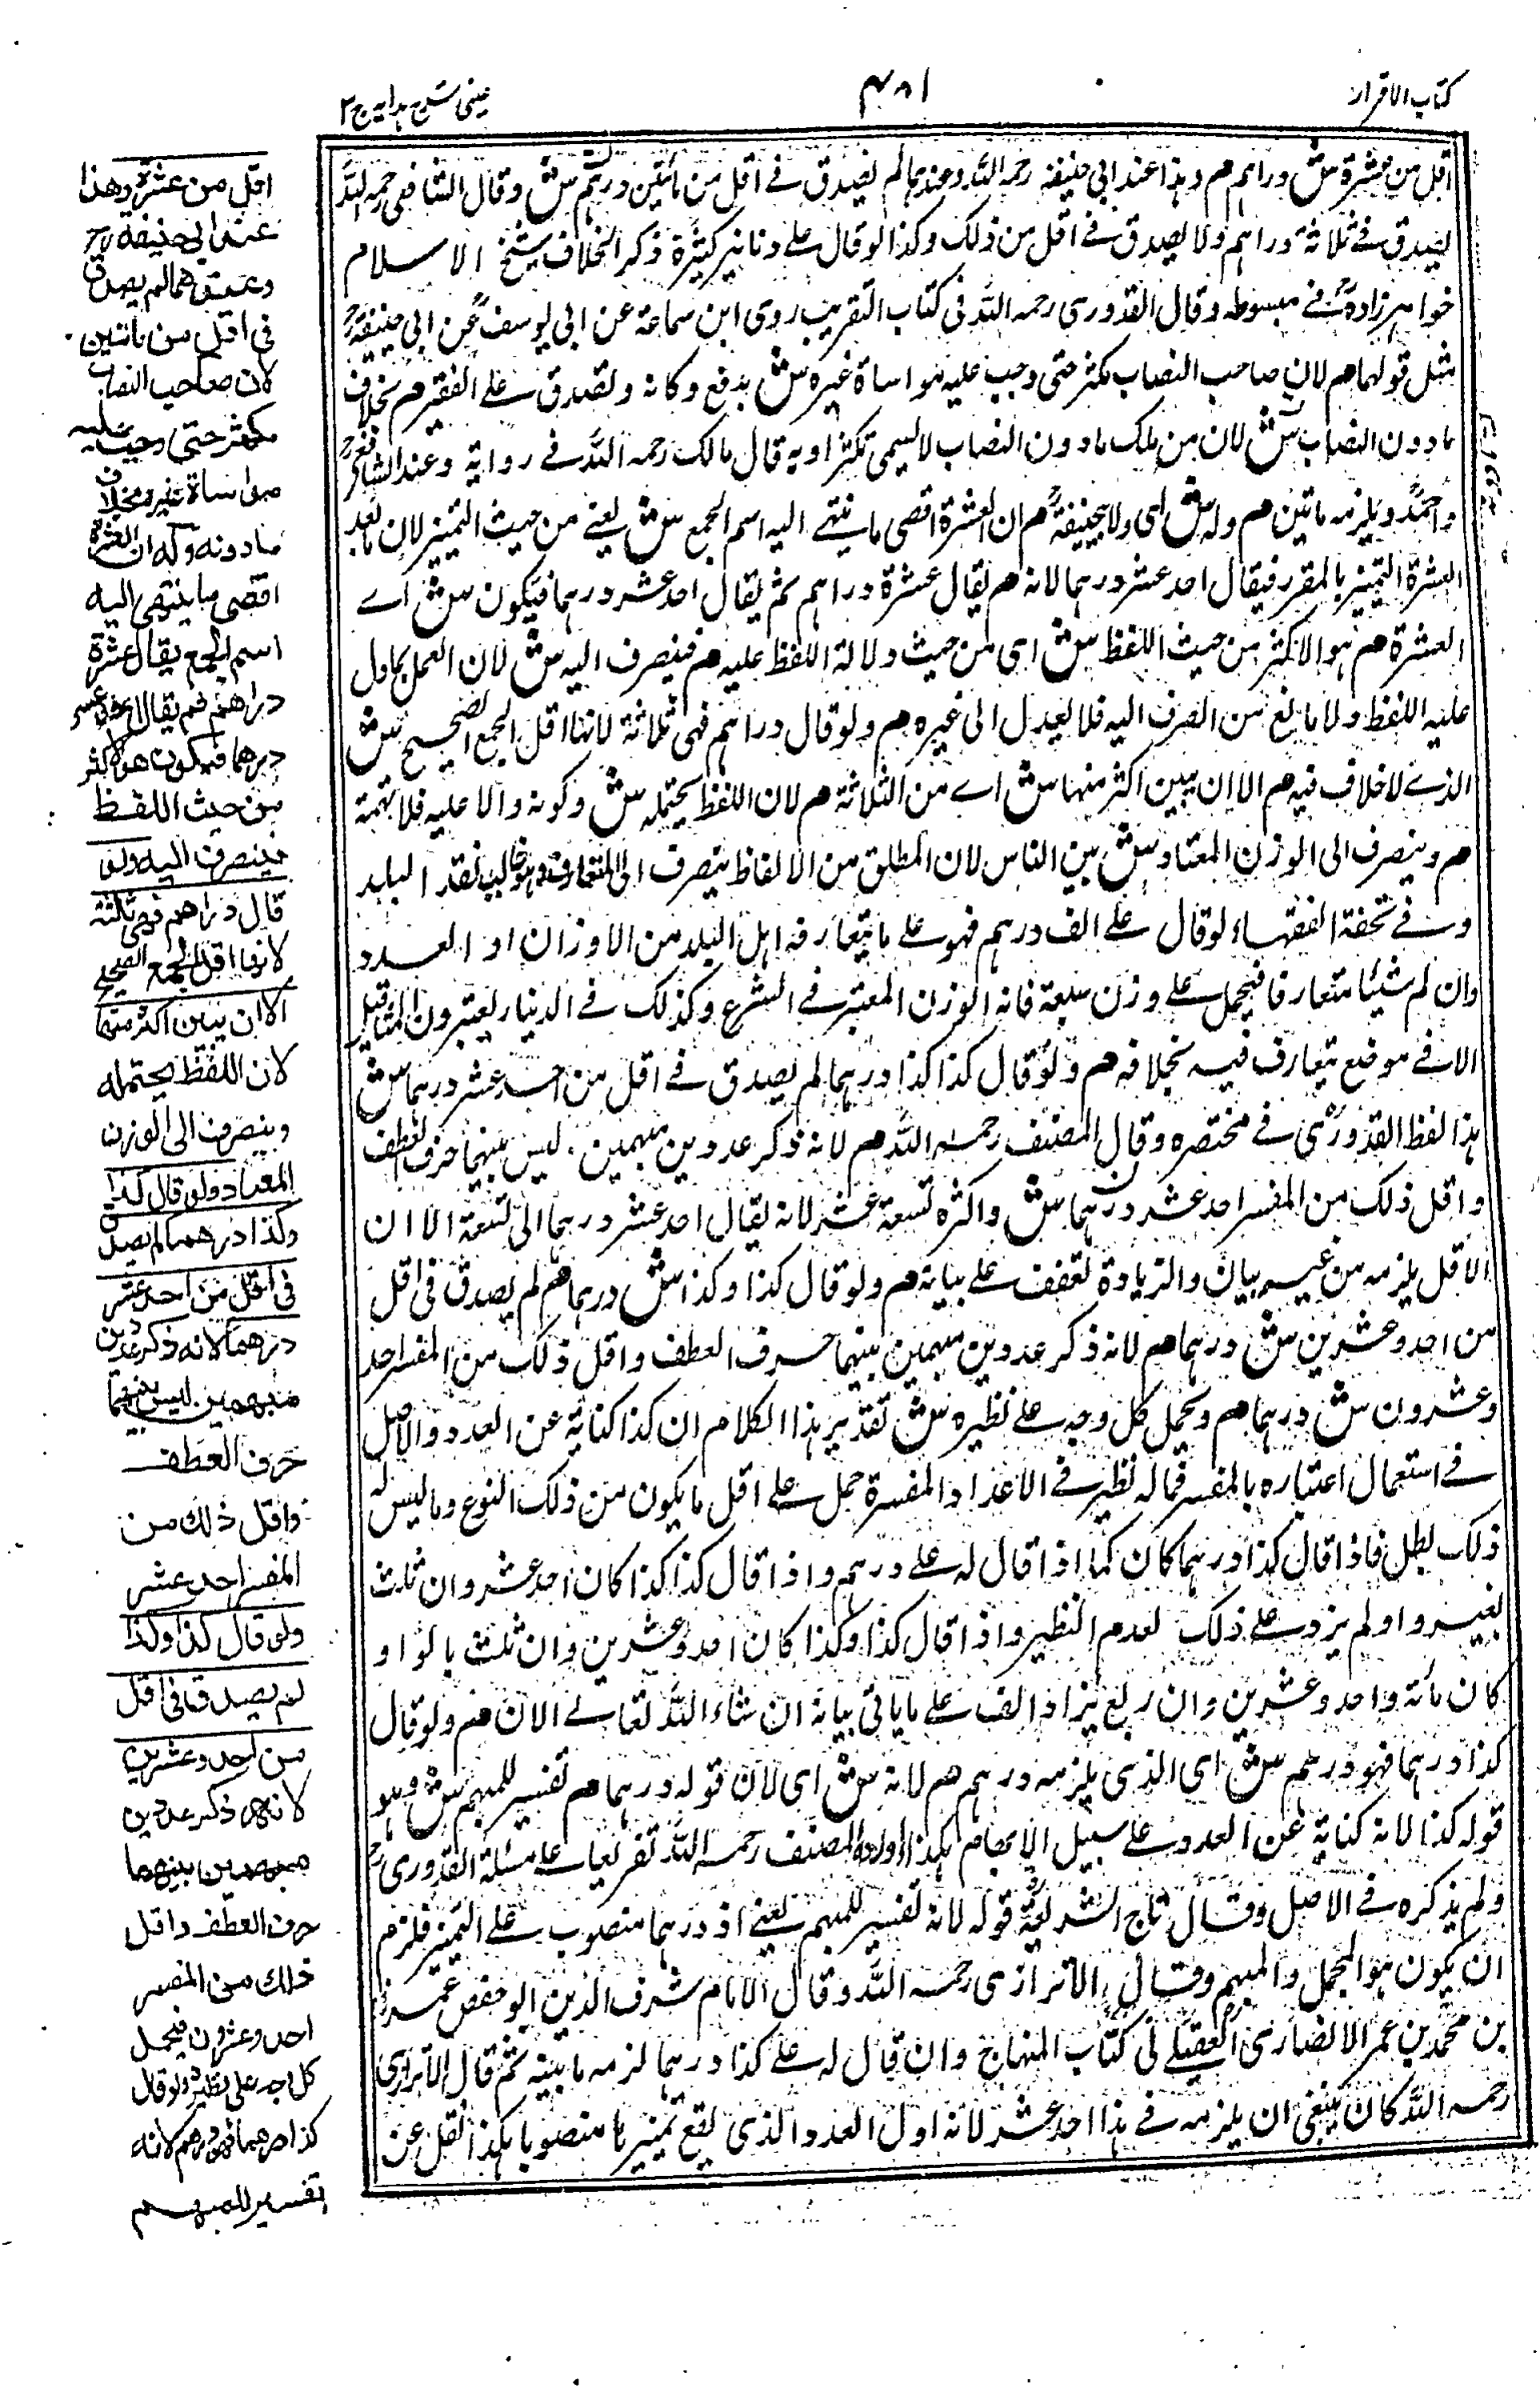 كتاب الاقرار
٤٨١
عينى شرح هدايه ج ٢
اقل من عشرة ش دراهم م وهذا عند ابي حنيفة رحمه الله وعندهما لم يصدق في اقل من مأتين درهم ش وقال الشافعى رحمه الله
يصدق في ثلاثة دراهم ولا يصدق في اقل من ذلك وكذا لو قال على دنانير كثيرة ذكر الخلاف شيخ الاسلام
خواهر زاده في مبسوطه وقال القدورى رحمه الله فى كتاب التقريب روى ابن سماعة عن ابى يوسف عن ابى حنيفة
مثل قولهما م لان صاحب النصاب مكثر حتى وجب عليه مواساة غيره ش بدفع زكاته ولتصدق على الفقير م بخلاف
مادون النصاب ش لان من يملك مادون النصاب لا يسمى مكثرا وبه قال مالك رحمه الله في رواية وعند الشافعى
واحمد ويلزمه مائتين م وله ش اى ولابيحنيفة م ان العشرة اقصى ما ينتهى اليه اسم الجمع ش يعنى من حيث التميز لان ما بعد
العشرة التميز بالمفرد فيقال احد عشر درهما لانه م يقال عشرة دراهم ثم يقال احد عشر درهما فيكون ش اى
العشرة م هو الاكثر من حيث اللفظ ش اى من حيث دلالة اللفظ عليه م فينصرف اليه ش لان العمل بما دل
عليه اللفظ ولا مانع من الصرف اليه فلا يعدل الى غيره م ولو قال دراهم فهى ثلاثة لانها اقل الجمع الصحيح ش
الذى لا خلاف فيه م الا ان يبين اكثر منها ش اى من الثلاثة م لان اللفظ يحتمله ش وكونه والا عليه فلا تهمة
م وينصرف الى الوزن المعتاد ش بين الناس لان المطلق من الالفاظ ينصرف الى المتعارف وهو غالب نقد البلد
وفي تحفة الفقهاء لو قال على الف درهم فهو على ما يتعارفه اهل البلد من الاوزان او العدد
وان لم شيئا متعارفا فيحمل على وزن سبعة فانه الوزن المعتبر في الشرع وكذلك في الدينار يعتبرون المثاقيل
الا في موضع يتعارف فيه بخلافه م ولو قال كذا كذا درهما لم يصدق في اقل من احد عشر درهما ش
هذا لفظ القدورى في مختصره وقال المصنف رحمه الله م لانه ذكر عددين مبهمين ليس بينهما حرف العطف
واقل ذلك من المفسر احد عشر درهما ش واكثره تسعة عشر لانه يقال احد عشر درهما الى تسعة الا ان
الاقل يلزمه من غير بيان والزيادة تقف على بيانه م ولو قال كذا وكذا ش درهما م لم يصدق فى اقل
من احد وعشرين ش درهما م لانه ذكر عددين مبهمين بينهما حرف العطف واقل ذلك من المفسر احد
وعشرون ش درهما م ويحمل كل وجه على نظيره ش تقدير هذا الكلام ان كذا كناية عن العدد والاصل
في استعمال اعتباره بالمفسر فماله نظير في الاعداد المفسرة حمل على اقل ما يكون من ذلك النوع وما ليس له
ذلك بطل فاذا قال كذا درهما كان كما اذا قال له على درهم واذا قال كذا كذا كان احد عشر وان ثلث
بغير واو لم يزد على ذلك لعدم النظير واذا قال كذا وكذا كان احد وعشرين وان ثلث بالواو
كان مأته واحد وعشرين وان ربع يزاد الف على ما ياتى بيانه ان شاء الله تعالى الان م ولو قال
كذا درهما فهو درهم ش اى الذى يلزمه درهم م لانه ش اى لان قوله درهما م تفسير للمبهم ش وهو
قوله كذا لانه كناية عن العدد على سبيل الابهام هكذا اورده المصنف رحمه الله تفريعا على مسئلة القدورى
ولم يذكره في الاصل وقال تاج الشريعة قوله لانه تفسير للمبهم يعنى اذ درهما منصوب على التميز فلزم
ان يكون هو المجمل والمبهم وقال الاترازى رحمه الله وقال الامام شرف الدين ابو حفص عمر
بن محمد بن عمر الانصارى العقيلى فى كتاب المنهاج وان قال له على كذا درهما لزمه ما بينه ثم قال الاترازى
رحمه الله كان ينبغى ان يلزمه في هذا احد عشر لانه اول العدد الذى يقع تميزه ما منصوبا هكذا نقل عن
اقل من عشرة وهذا
عند ابى حنيفة رح
وعندهما لم يصدق
فى اقل من مائتين
لان صاحب النصاب
مكثر حتى وجب عليه
مواساة غيره بخلاف
مادونه وله ان العشرة
اقصى ما ينتهى اليه
اسم الجمع يقال عشرة
دراهم ثم يقال احد عشر
درهما فيكون هو الاكثر
من حيث اللفظ
فينصرف اليه ولو
قال دراهم فهى ثلثة
لانها اقل الجمع الصحيح
الا ان يبين اكثر منها
لان اللفظ يحتمله
وينصرف الى الوزن
المعتاد ولو قال كذا
وكذا درهما لم يصدق
فى اقل من احد عشر
درهما لانه ذكر عددين
مبهمين ليس بينهما
حرف العطف
واقل ذلك من
المفسر احد عشر
ولو قال كذا وكذا
لم يصدق فى اقل
من احد وعشرين
لانه ذكر عددين
مبهمين بينهما
حرف العطف واقل
ذلك من المفسر
احد وعشرون فيحمل
كل وجه على نظيره ولو قال
كذا درهما فهو درهم لانه
تفسير للمبهم